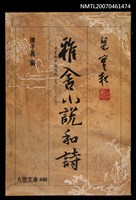 NMTL20070461474
梁實秋
陳子善 編
雅舍小說和詩
九歌文庫 446